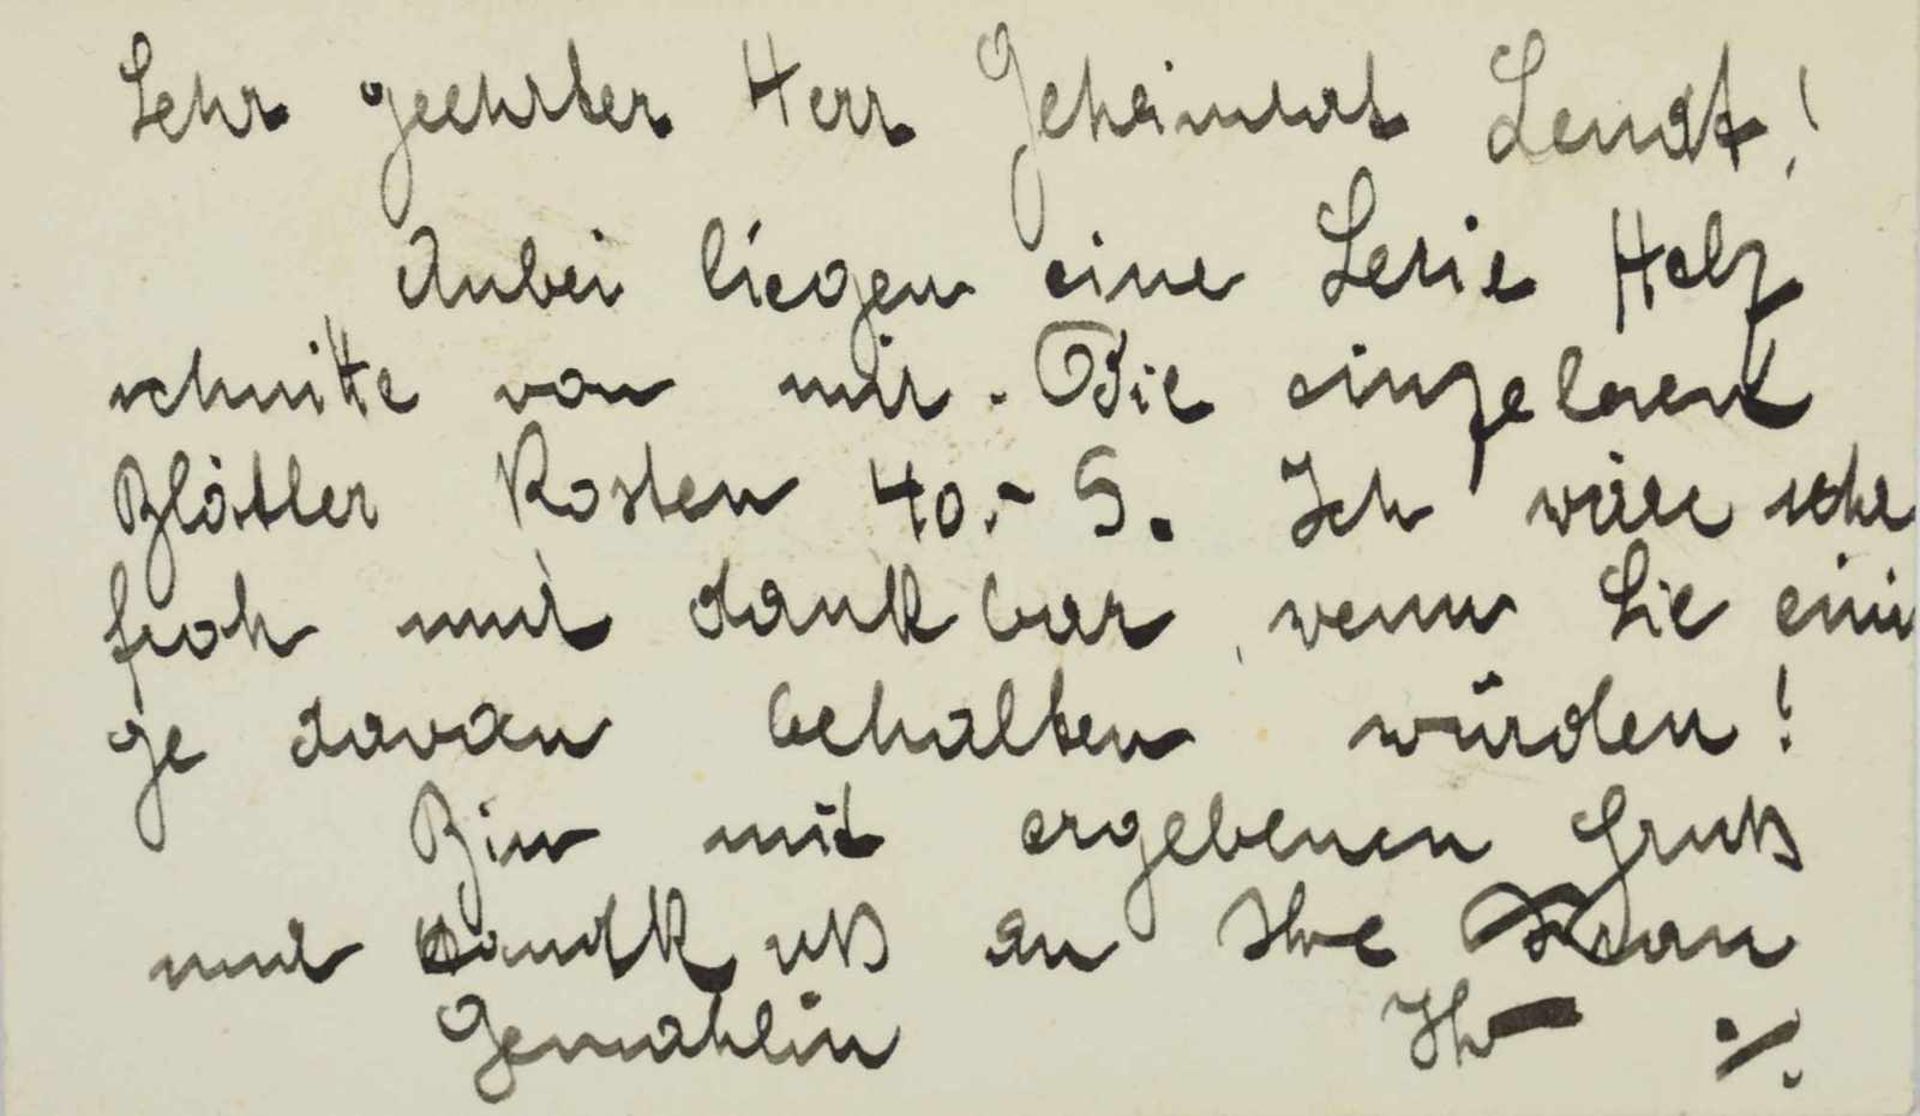 Sehr geehrter Herr Geheimrat Lendt!
Anbei liegen eine Serie Holz
schnitte von mir. Die einzelnen
Blätter kosten 40.- S. Ich wäre sehr
froh und dankbar, wenn Sie eini
ge davon behalten würden!
Bin mit ergebenen Gruß
und Handkuß an Ihre Frau
Gemahlin Ihr ./.